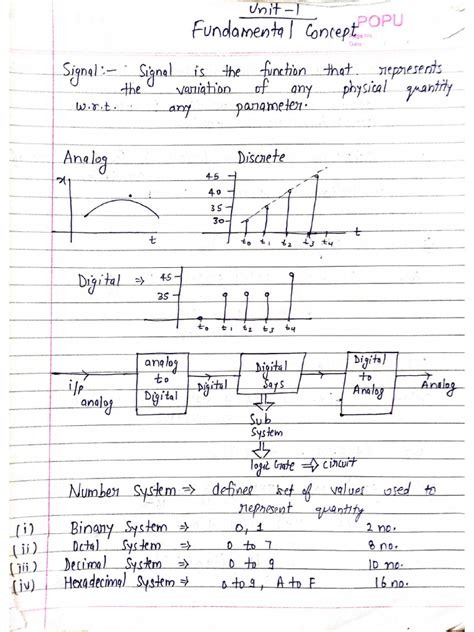 Unit-1
Fundamental Concept
POPU
Signal:- Signal is the function that represents
the variation of any physical quantity
w.r.t. any parameter.
Analog
Discrete
x
t
45
40
35
30
t0 t1 t2 t3 t4
t
Digital ⇒
45
35
t0 t1 t2 t3 t4
i/p
analog
analog
to
Digital
Digital
Digital
Sys
Digital
to
Analog
Analog
Sub
System
logic Gate ⇒ circuit
Number System ⇒ defines set of values used to
represent quantity
(i) Binary System ⇒ 0, 1 2 no.
(ii) Octal System ⇒ 0 to 7 8 no.
(iii) Decimal System ⇒ 0 to 9 10 no.
(iv) Hexadecimal System ⇒ 0 to 9, A to F 16 no.